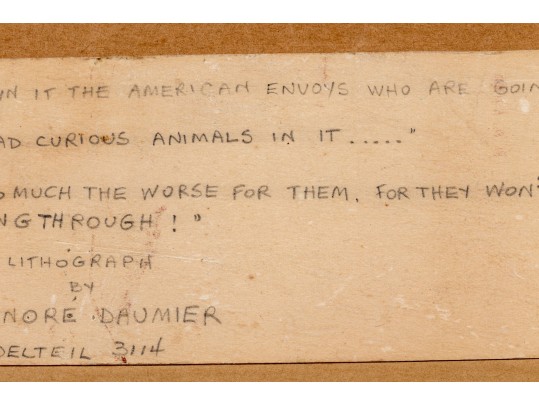 WN IT THE AMERICAN ENVOYS WHO ARE GOIN
AD CURIOUS ANIMALS IN IT....."
O MUCH THE WORSE FOR THEM, FOR THEY WON'
NG THROUGH!"
LITHOGRAPH
BY
NORÉ DAUMIER
DELTEIL 3114